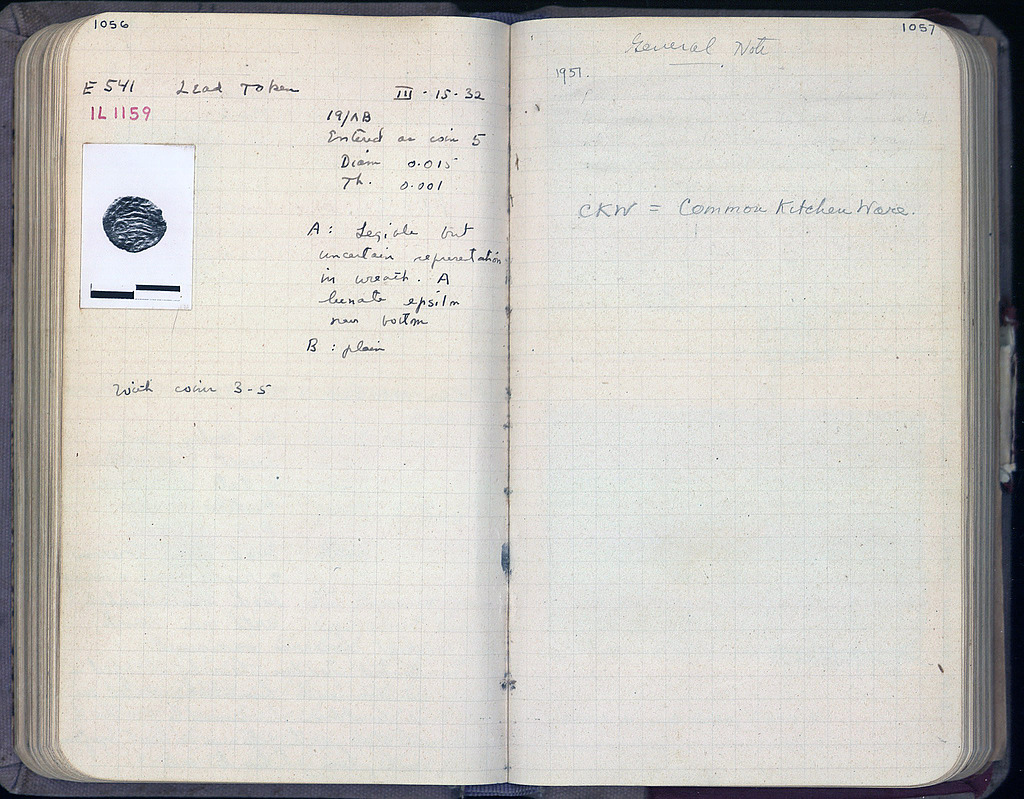 1056
E 541 Lead Token III - 15 - 32
IL 1159
19/ΛB
Entered as coin 5
Diam 0.015
Th. 0.001
A : Legible but
uncertain representation
in wreath. A
lunate epsiln
near bottm
B : plain
With coins 3-5
1057
General Note
1951.
CKW = Common Kitchen Ware.